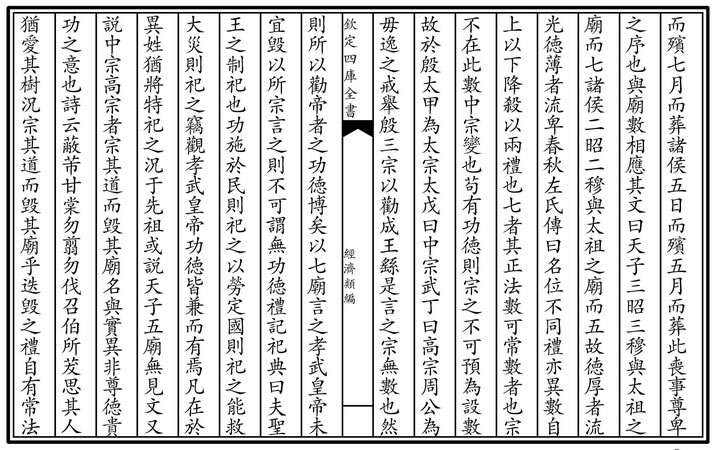 而殯七月而葬諸侯五日而殯五月而葬此喪事尊卑
之序也與廟數相應其文曰天子三昭三穆與太祖之
廟而七諸侯二昭二穆與太祖之廟而五故德厚者流
光德薄者流卑春秋左氏傳曰名位不同禮亦異數自
上以下降殺以兩禮也七者其正法數可常數者也宗
不在此數中宗變也苟有功德則宗之不可預為設數
故於殷太甲為太宗太戊曰中宗武丁曰高宗周公為
毋逸之戒舉殷三宗以勸成王繇是言之宗無數也然
欽定四庫全書
經濟類編
則所以勸帝者之功德博矣以七廟言之孝武皇帝未
宜毀以所宗言之則不可謂無功德禮記祀典曰夫聖
王之制祀也功施於民則祀之以勞定國則祀之能救
大災則祀之竊觀孝武皇帝功德皆兼而有焉凡在於
異姓猶將特祀之況于先祖或說天子五廟無見文又
說中宗高宗者宗其道而毀其廟名與實異非尊德貴
功之意也詩云蔽芾甘棠勿翦勿伐召伯所茇思其人
猶愛其樹況宗其道而毀其廟乎迭毀之禮自有常法